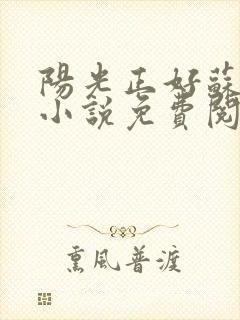 陽光正好蘇
小說免費閱
熏風普渡